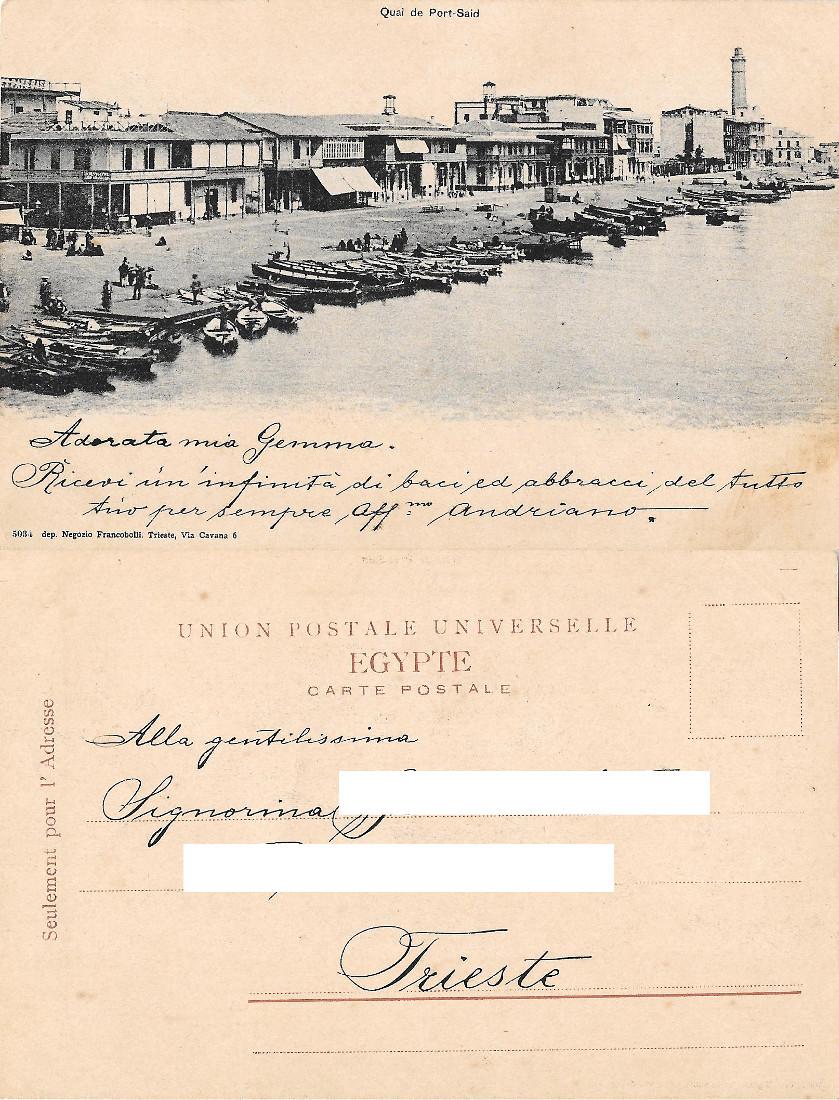 Quai de Port-Said
Adorata mia Gemma.
Ricevi un'infinità di baci ed abbracci del tutto
tuo per sempre Aff.mo Andriano.
5034 dep. Negozio Francobolli. Trieste, Via Cavana 6
UNION POSTALE UNIVERSELLE
EGYPTE
CARTE POSTALE
Seulement pour l' Adresse
Alla gentilissima
Signorina
Trieste